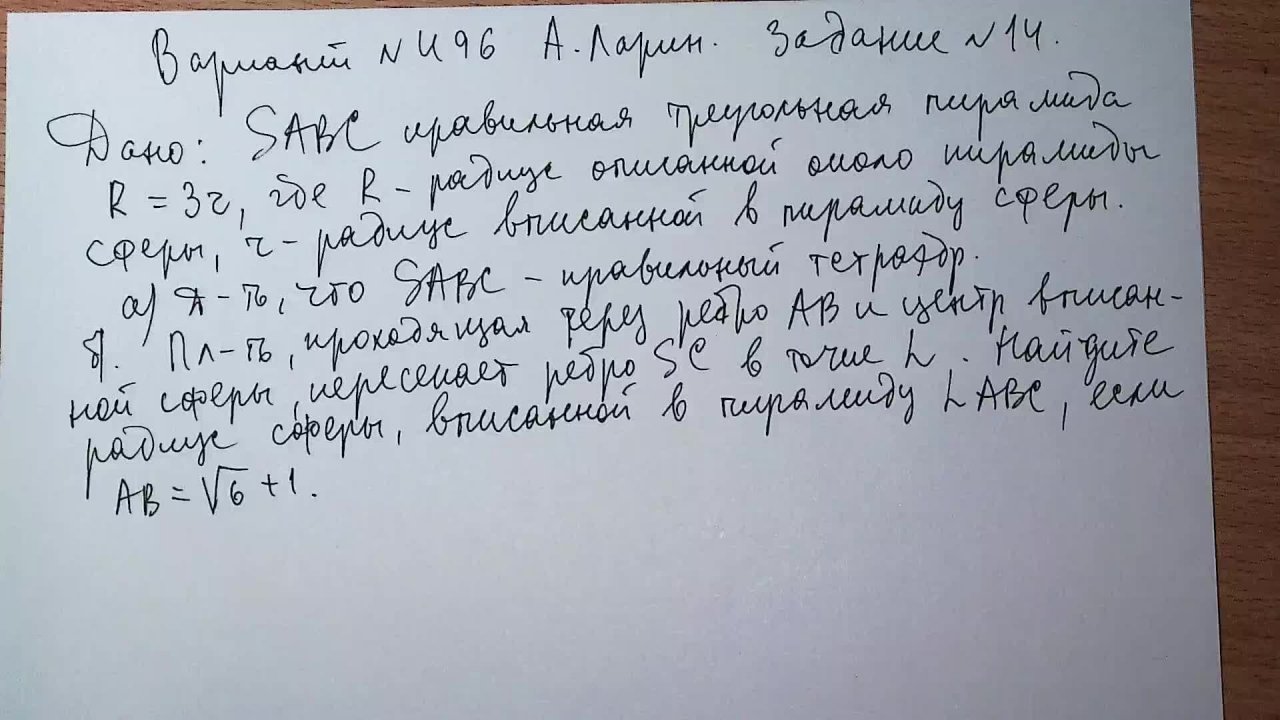 Вариант №496 А. Ларин. Задание №14.
Дано: SABC правильная треугольная пирамида
R = 3r, где R - радиус описанной около пирамиды
сферы, r - радиус вписанной в пирамиду сферы.
а) Д-ть, что SABC - правильный тетраэдр.
б). Пл-ть, проходящая через ребро AB и центр вписан-
ной сферы, пересекает ребро SC в точке L. Найдите
радиус сферы, вписанной в пирамиду LABC, если
AB = √6 + 1.